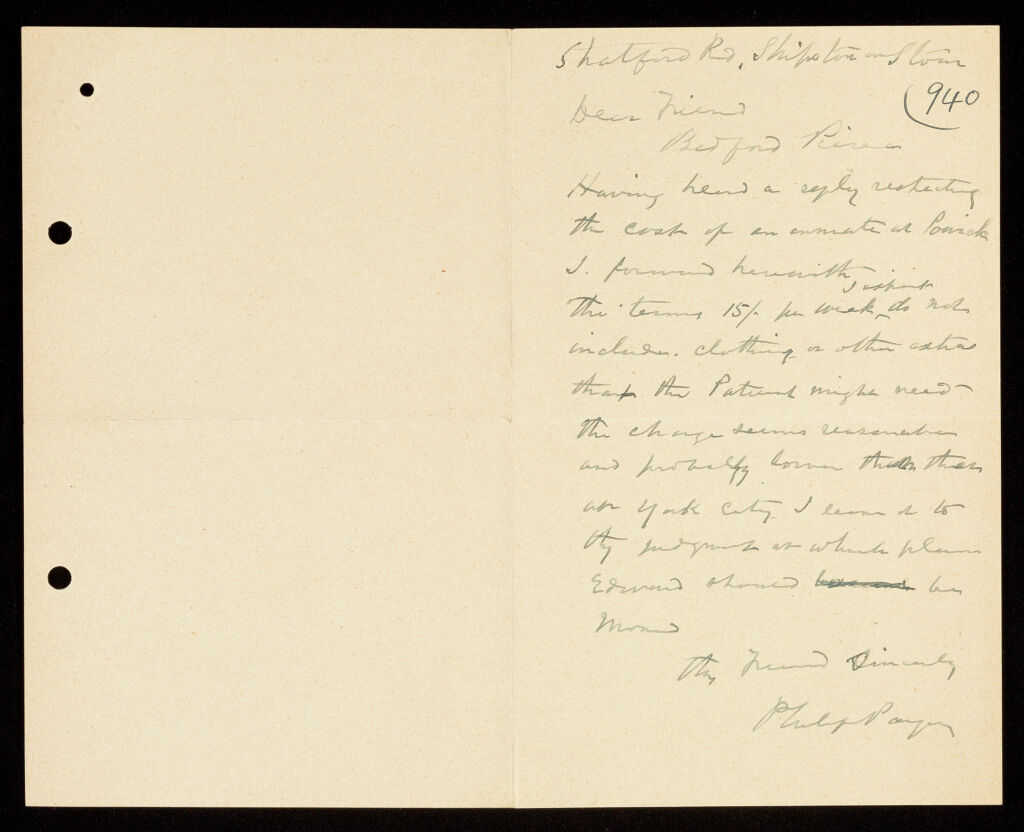 Stratford Rd, Shipston on Stour
940
Dear Friend
Bedford Pierce
Having heard a reply respecting
the cost of an inmate at Powick
I forward herewith
I expect
the terms 15/- per week do not
includes clothing or other extras
that the Patient might need
the charge seems reasonable
and probably lower than that
at York City I leave it to
thy judgment at which place
Edward should be
moved
thy Friend Sincerely
Philip Payne